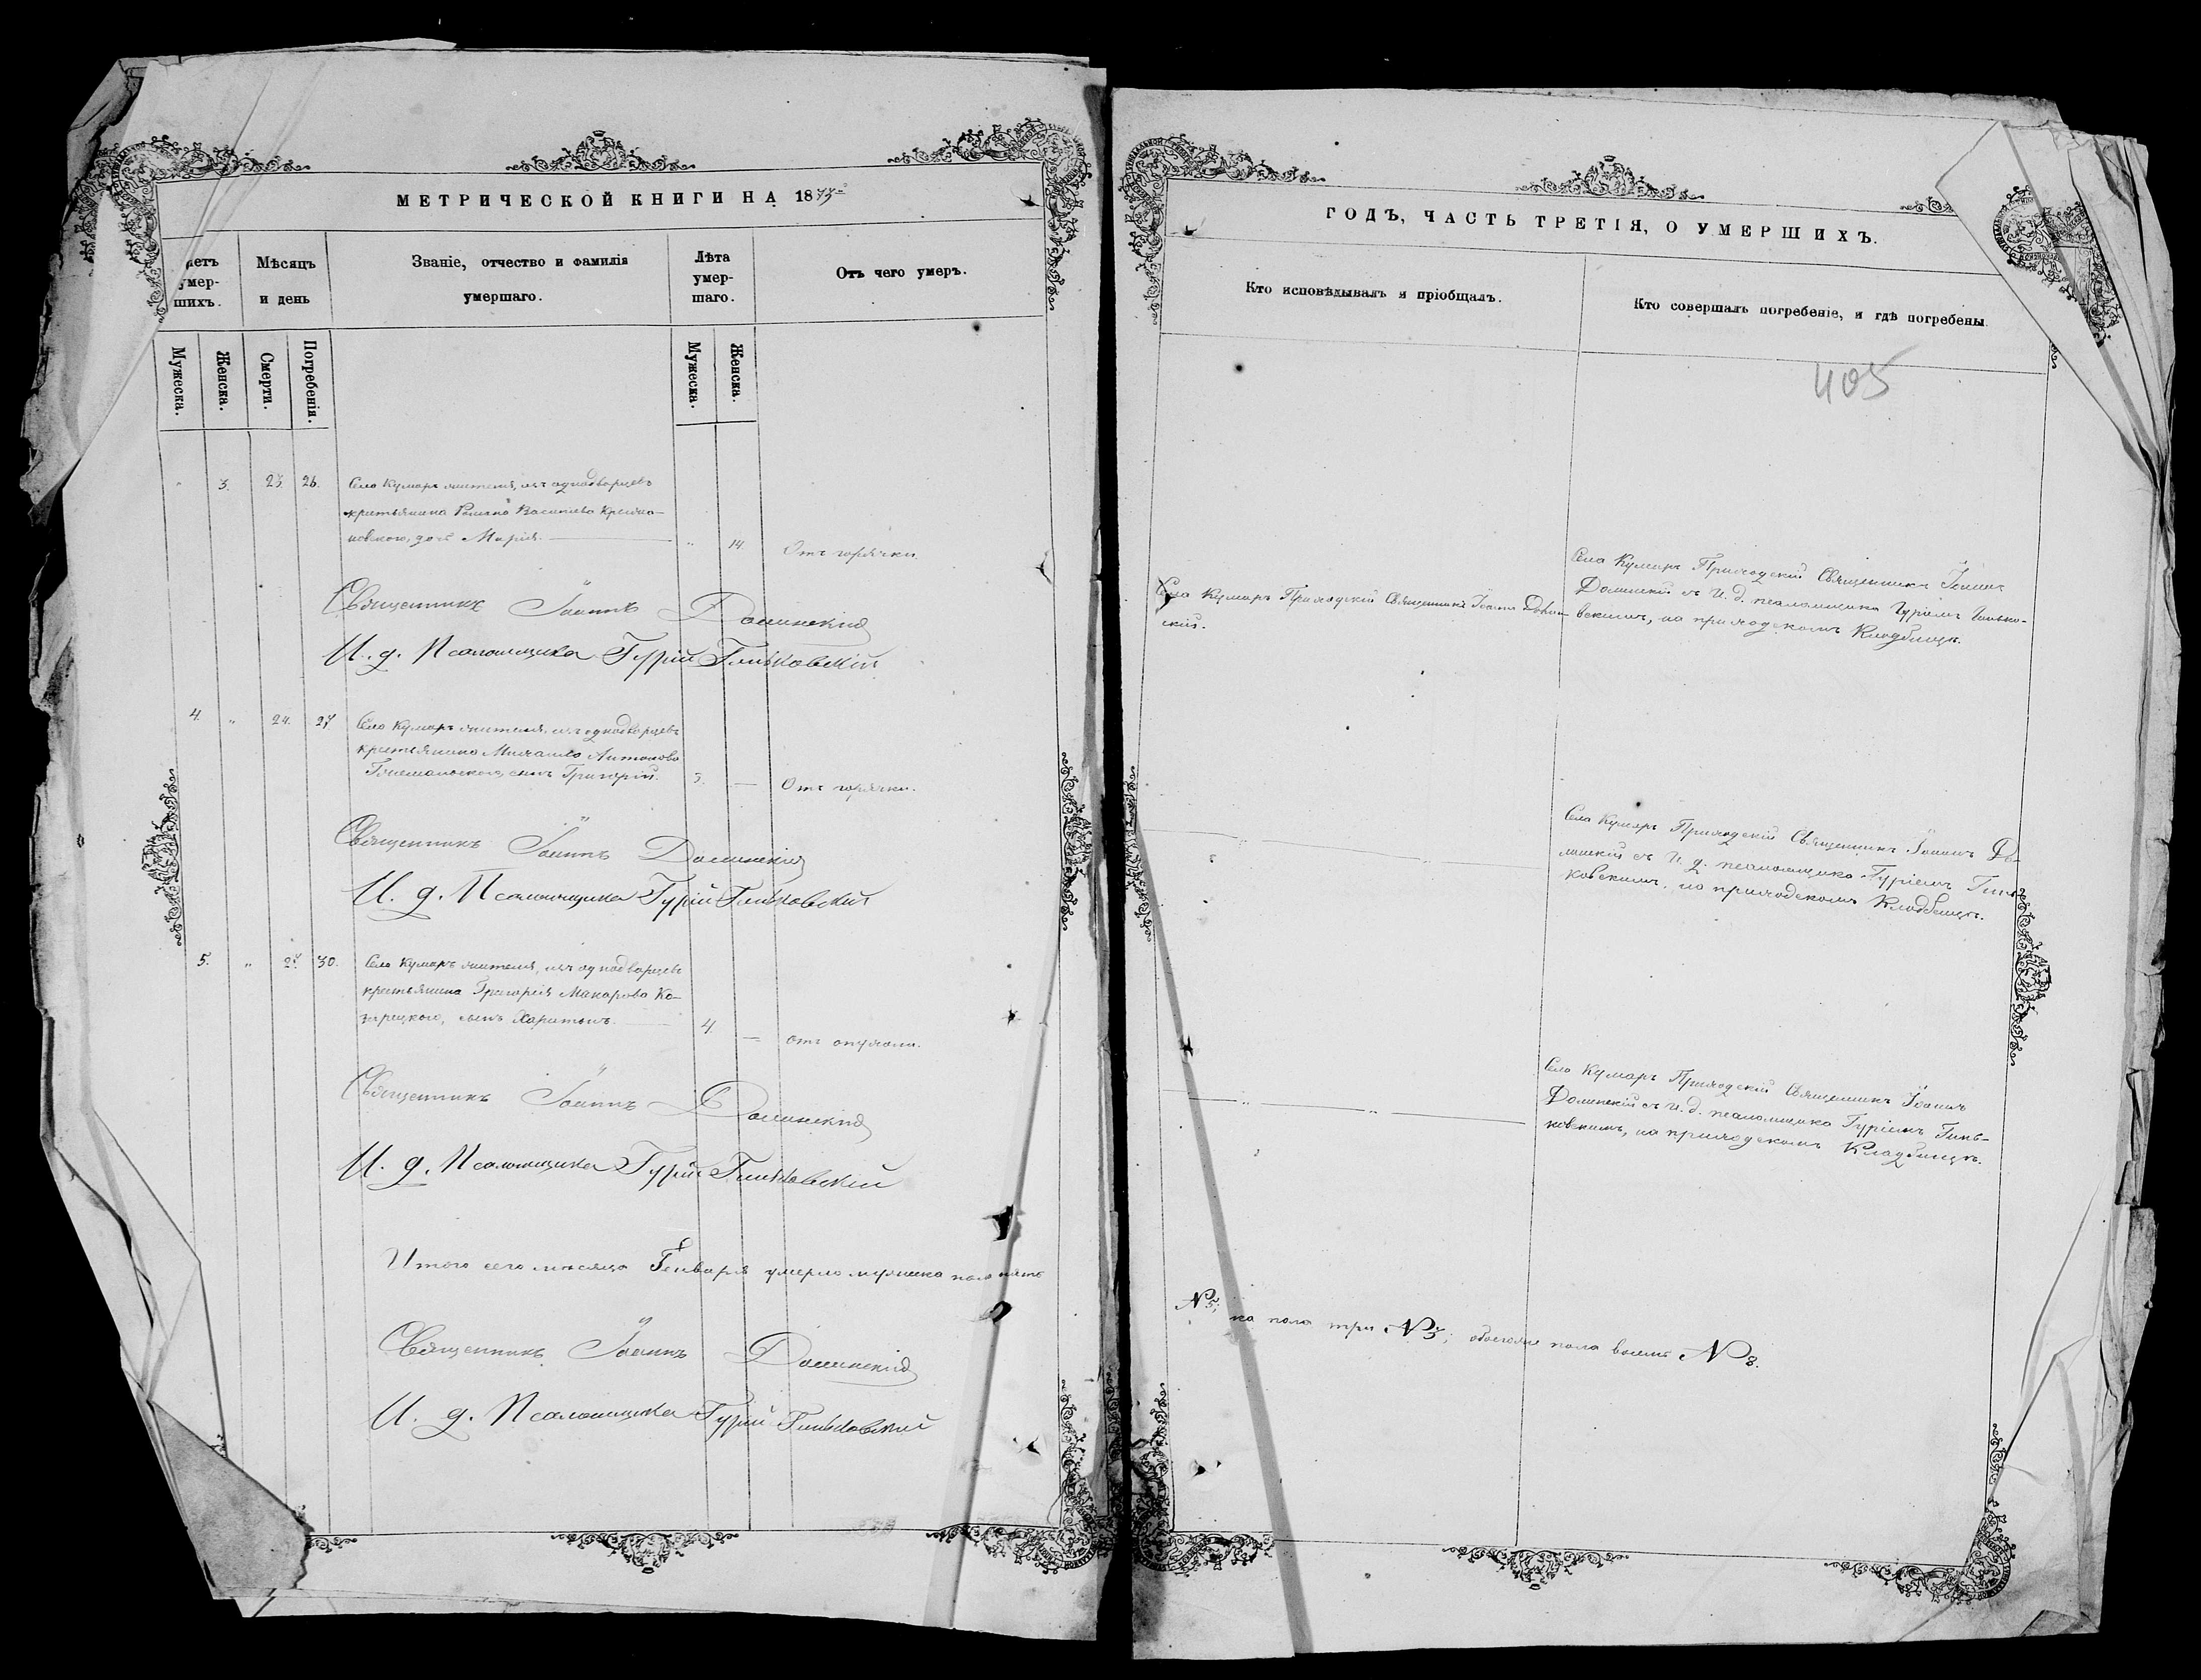 МЕТРИЧЕСКОЙ КНИГИ НА 1873
Счетъ умер-
шихъ.
Мѣсяцъ
и день
Званіе, отчество и фамилія
умершаго.
Лѣта
умер-
шаго.
Отъ чего умеръ.
Мужеска.
Женска.
Смерти.
Погребенія.
Мужеска.
Женска.
" 3. 23. 26.
Села Кумаръ жителя, изъ однодворцевъ
крестьянина Романа Василіева
новского, дочь Марія.
" 14. Отъ горячки.
Священникъ Іоаннъ Долинскій
И. д. Псаломщика Гурій Гиньковскій
4. " 24. 27
Села Кумаръ жителя, изъ однодворцевъ
крестьянина Михаила Антонова
сынъ Григорій.
3. — Отъ горячки.
Священникъ Іоаннъ Долинскій
И. д. Псаломщика Гурій Гиньковскій
5. " 27 30.
Села Кумаръ жителя, изъ однодворцевъ
крестьянина Григорія Макарова Ко-
зарецкого, сынъ Харитонъ.
4. — отъ опухоли.
Священникъ Іоаннъ Долинскій
И. д. Псаломщика Гурій Гиньковскій
Итого сего мѣсяца Генваря умерло мужеска пола пять
Священникъ Іоаннъ Долинскій
И. д. Псаломщика Гурій Гиньковскій
ГОДЪ, ЧАСТЬ ТРЕТІЯ, О УМЕРШИХЪ.
Кто исповѣдывалъ и пріобщалъ.
Кто совершалъ погребеніе, и гдѣ погребены.
405
Села Кумаръ Приходскій Священникъ Іоаннъ Долин-
скій.
Села Кумаръ Приходскій Священникъ Іоаннъ
Долинскій съ И. д. псаломщика Гуріемъ Гинько-
вскимъ, на приходскомъ Кладбищѣ.
Села Кумаръ Приходскій Священникъ Іоаннъ До-
линскій съ И. д. псаломщика Гуріемъ Гинь-
ковскимъ, на приходскомъ Кладбищѣ.
Села Кумаръ Приходскій Священникъ Іоаннъ
Долинскій съ И. д. псаломщика Гуріемъ Гинь-
ковскимъ, на приходскомъ Кладбищѣ.
№ 5; ка пола три № 3; обоего пола восемь № 8.